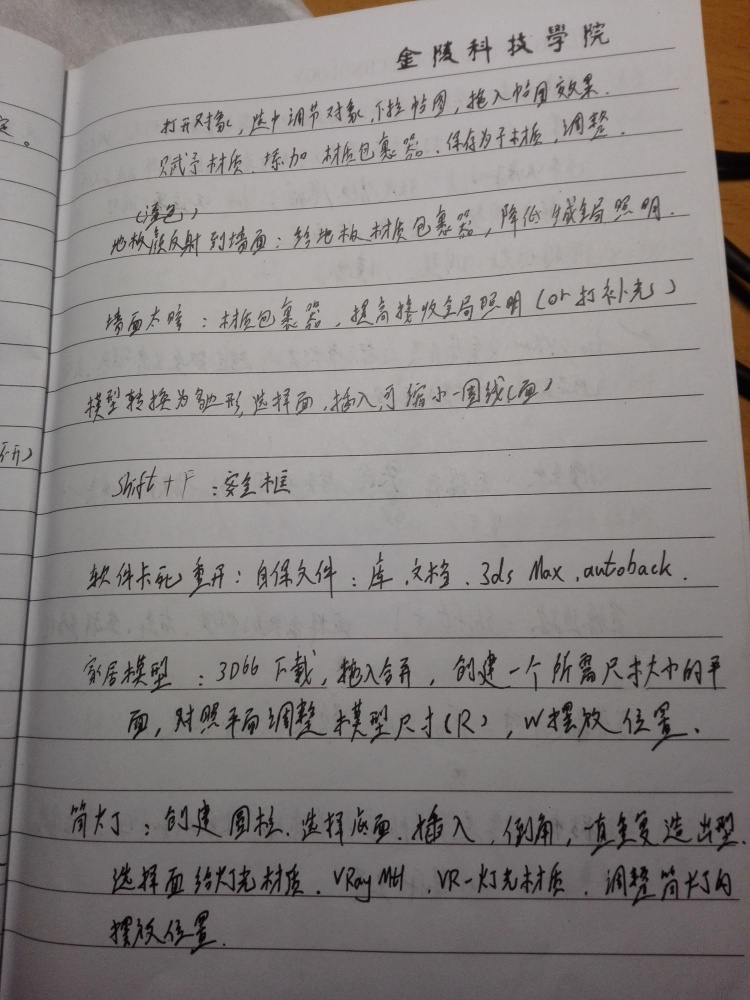 金陵科技學院
打开对象，选中调节对象，下拉帖图，拖入帖图效果.
赋予材质、添加 材质包裹器、保存为子材质，调整.
(溢色)
地板颜反射到墙面：给地板材质包裹器，降低 全局照明.
墙面太暗：材质包裹器，提高接收全局照明(or打补充)
模型转换为多边形，选择面，插入，可缩小一圈线(面)
开)
Shift + F：安全框
软件卡死重开：自保文件：库、文档、3ds Max、autoback.
家居模型：3D66下载，拖入合并，创建一个所需尺寸大小的平
面，对照平面调整模型尺寸(R)，W摆放位置、
筒灯：创建圆柱、选择底面、插入，倒角，一直重复造出型.
选择面给灯光材质、VRay Mtl、VR-灯光材质、调整筒灯的
摆放位置.